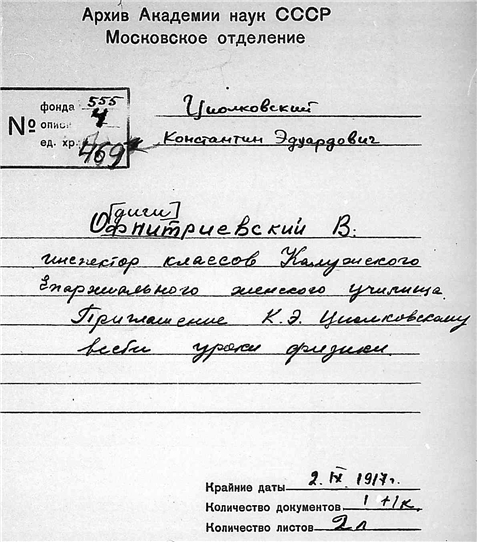 Архив Академии наук СССР
Московское отделение
№
фонда 555
опис. 4
ед. хр. 469
Циолковский
Константин Эдуардович
[диги]
В.
инспектор классов Калужского
Епархиального женского училища.
Приглашение К.Э. Циолковскому
вести уроки физики.
Крайние даты 2.IX.1917г.
Количество документов 1+1к.
Количество листов 2л